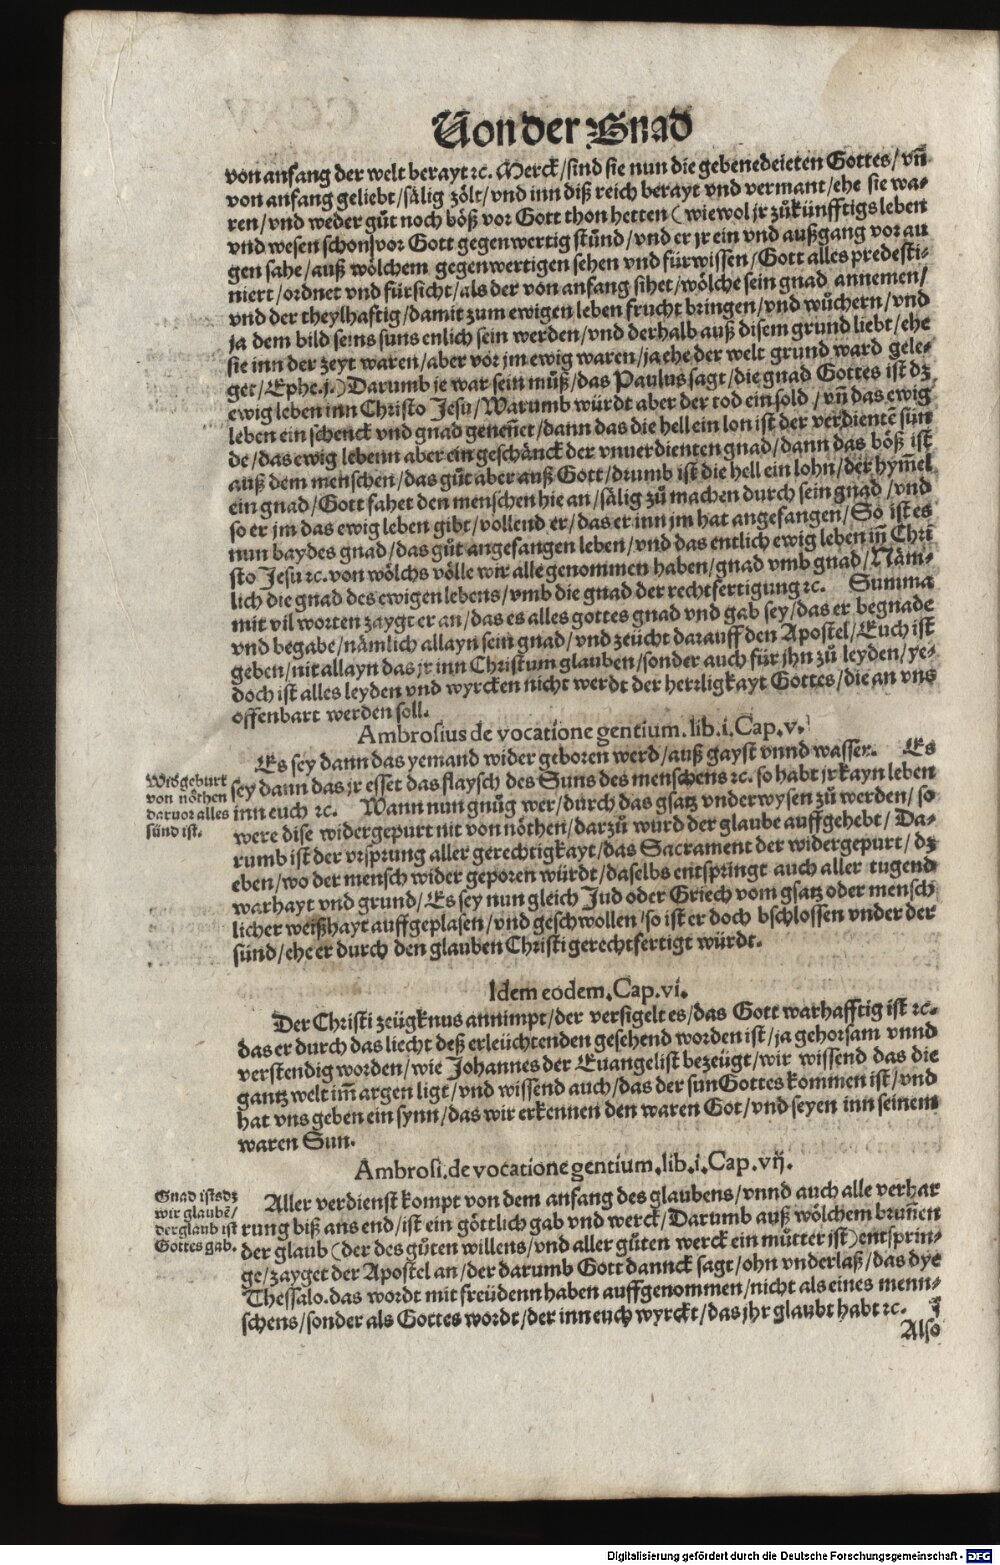 Von der Gnad
von anfang der welt berayt ꝛc. Merck/sind sie nun die gebenedeieten Gottes/vñ
von anfang geliebt/sälig zölt/vnd inn diß reich berayt vnd vermant/ehe sie wa⸗
ren/vnd weder gůt noch böß vor Gott thon hetten (wiewol jr zůkünfftigs leben
vnd wesen schon vor Gott gegenwertig stůnd/vnd er jr ein vnd außgang vor au
gen sahe/auß wölchem gegenwertigen sehen vnd fürwissen/Gott alles predesti⸗
niert/ordnet vnd fürsicht/als der von anfang sihet/wölche sein gnad annemen/
vnd der theylhaftig/damit zum ewigen leben frucht bringen/vnd wůchern/vnd
ja dem bild seins suns enlich sein werden/vnd derhalb auß disem grund liebt/ehe
sie inn der zeyt waren/aber vor jm ewig waren/ja ehe der welt grund ward gele⸗
get/Ephe.j.) Darumb je war sein můß/das Paulus sagt/die gnad Gottes ist dz
ewig leben inn Christo Jesu/Warumb würdt aber der tod ein sold/vñ das ewig
leben ein schenck vnd gnad geneñet/dann das die hell ein lon ist der verdientē sün
de/das ewig lebenn aber ein geschänck der vnuerdienten gnad/dann das böß ist
auß dem menschen/das gůt aber auß Gott/drumb ist die hell ein lohn/der hym̃el
ein gnad/Gott fahet den menschen hie an/sälig zů machen durch sein gnad/vnd
so er jm das ewig leben gibt/vollend er/das er inn jm hat angefangen/So ist es
nun baydes gnad/das gůt angefangen leben/vnd das entlich ewig leben iñ Chri
sto Jesu ꝛc. von wölchs völle wir alle genommen haben/gnad vmb gnad/Näm⸗
lich die gnad des ewigen lebens/vmb die gnad der rechtfertigung ꝛc. Summa
mit vil worten zaygt er an/das es alles gottes gnad vnd gab sey/das er begnade
vnd begabe/nämlich allayn sein gnad/vnd zeücht darauff den Apostel/Euch ist
geben/nit allayn das jr inn Christum glauben/sonder auch für jhn zů leyden/ye⸗
doch ist alles leyden vnd wyrcken nicht werdt der herrligkayt Gottes/die an vns
offenbart werden soll.
Ambrosius de vocatione gentium. lib. i. Cap. v.
Es sey dann das yemand wider geboren werd/auß gayst vnnd wasser. Es
sey dann das jr esset das flaysch des Suns des menschens ꝛc. so habt jr kayn leben
inn euch ꝛc. Wann nun gnůg wer/durch das gsatz vnderwysen zů werden/so
were dise widergepurt nit von nöthen/darzů wurd der glaube auffgehebt/Da⸗
rumb ist der vrsprung aller gerechtigkayt/das Sacrament der widergepurt/dz
eben/wo der mensch wider geporen würdt/daselbs entspringt auch aller tugend
warhayt vnd grund/Es sey nun gleich Jud oder Griech vom gsatz oder mensch
licher weißhayt auffgeplasen/vnd geschwollen/so ist er doch bschlossen vnder der
sünd/ehe er durch den glauben Christi gerechtfertigt würdt.
Widgeburt
von nöthen
daruor alles
sünd ist.
Idem eodem. Cap. vi.
Der Christi zeügknus annimpt/der versigelt es/das Gott warhafftig ist ꝛc.
das er durch das liecht deß erleüchtenden gesehend worden ist/ja gehorsam vnnd
verstendig worden/wie Johannes der Euangelist bezeügt/wir wissend das die
gantz welt im̃ argen ligt/vnd wissend auch/das der sun Gottes kommen ist/vnd
hat vns geben ein synn/das wir erkennen den waren Got/vnd seyen inn seinem
waren Sun.
Ambrosi. de vocatione gentium. lib. i. Cap. vij.
Gnad ists dz
wir glaubē/
der glaub ist
Gottes gab.
Aller verdienst kompt von dem anfang des glaubens/vnnd auch alle verhar
rung biß ans end/ist ein göttlich gab vnd werck/Darumb auß wölchem bruñen
der glaub (der des gůten willens/vnd aller gůten werck ein můtter ist) entsprin⸗
ge/zayget der Apostel an/der darumb Gott dannck sagt/ohn vnderlaß/das dye
Thessalo. das wordt mit freüdenn haben auffgenommen/nicht als eines menn⸗
schens/sonder als Gottes wordt/der inn euch wyrckt/das jhr glaubt habt ꝛc.
Also
Digitalisierung gefördert durch die Deutsche Forschungsgemeinschaft - DFG